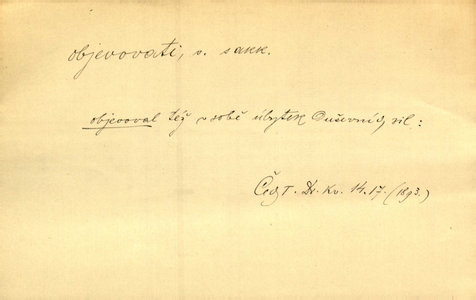 objevovati, v. sakk.
objevoval též v sobě úbytek duševních sil:
Čes T. Dr. Kv. 14.17. (1893.)